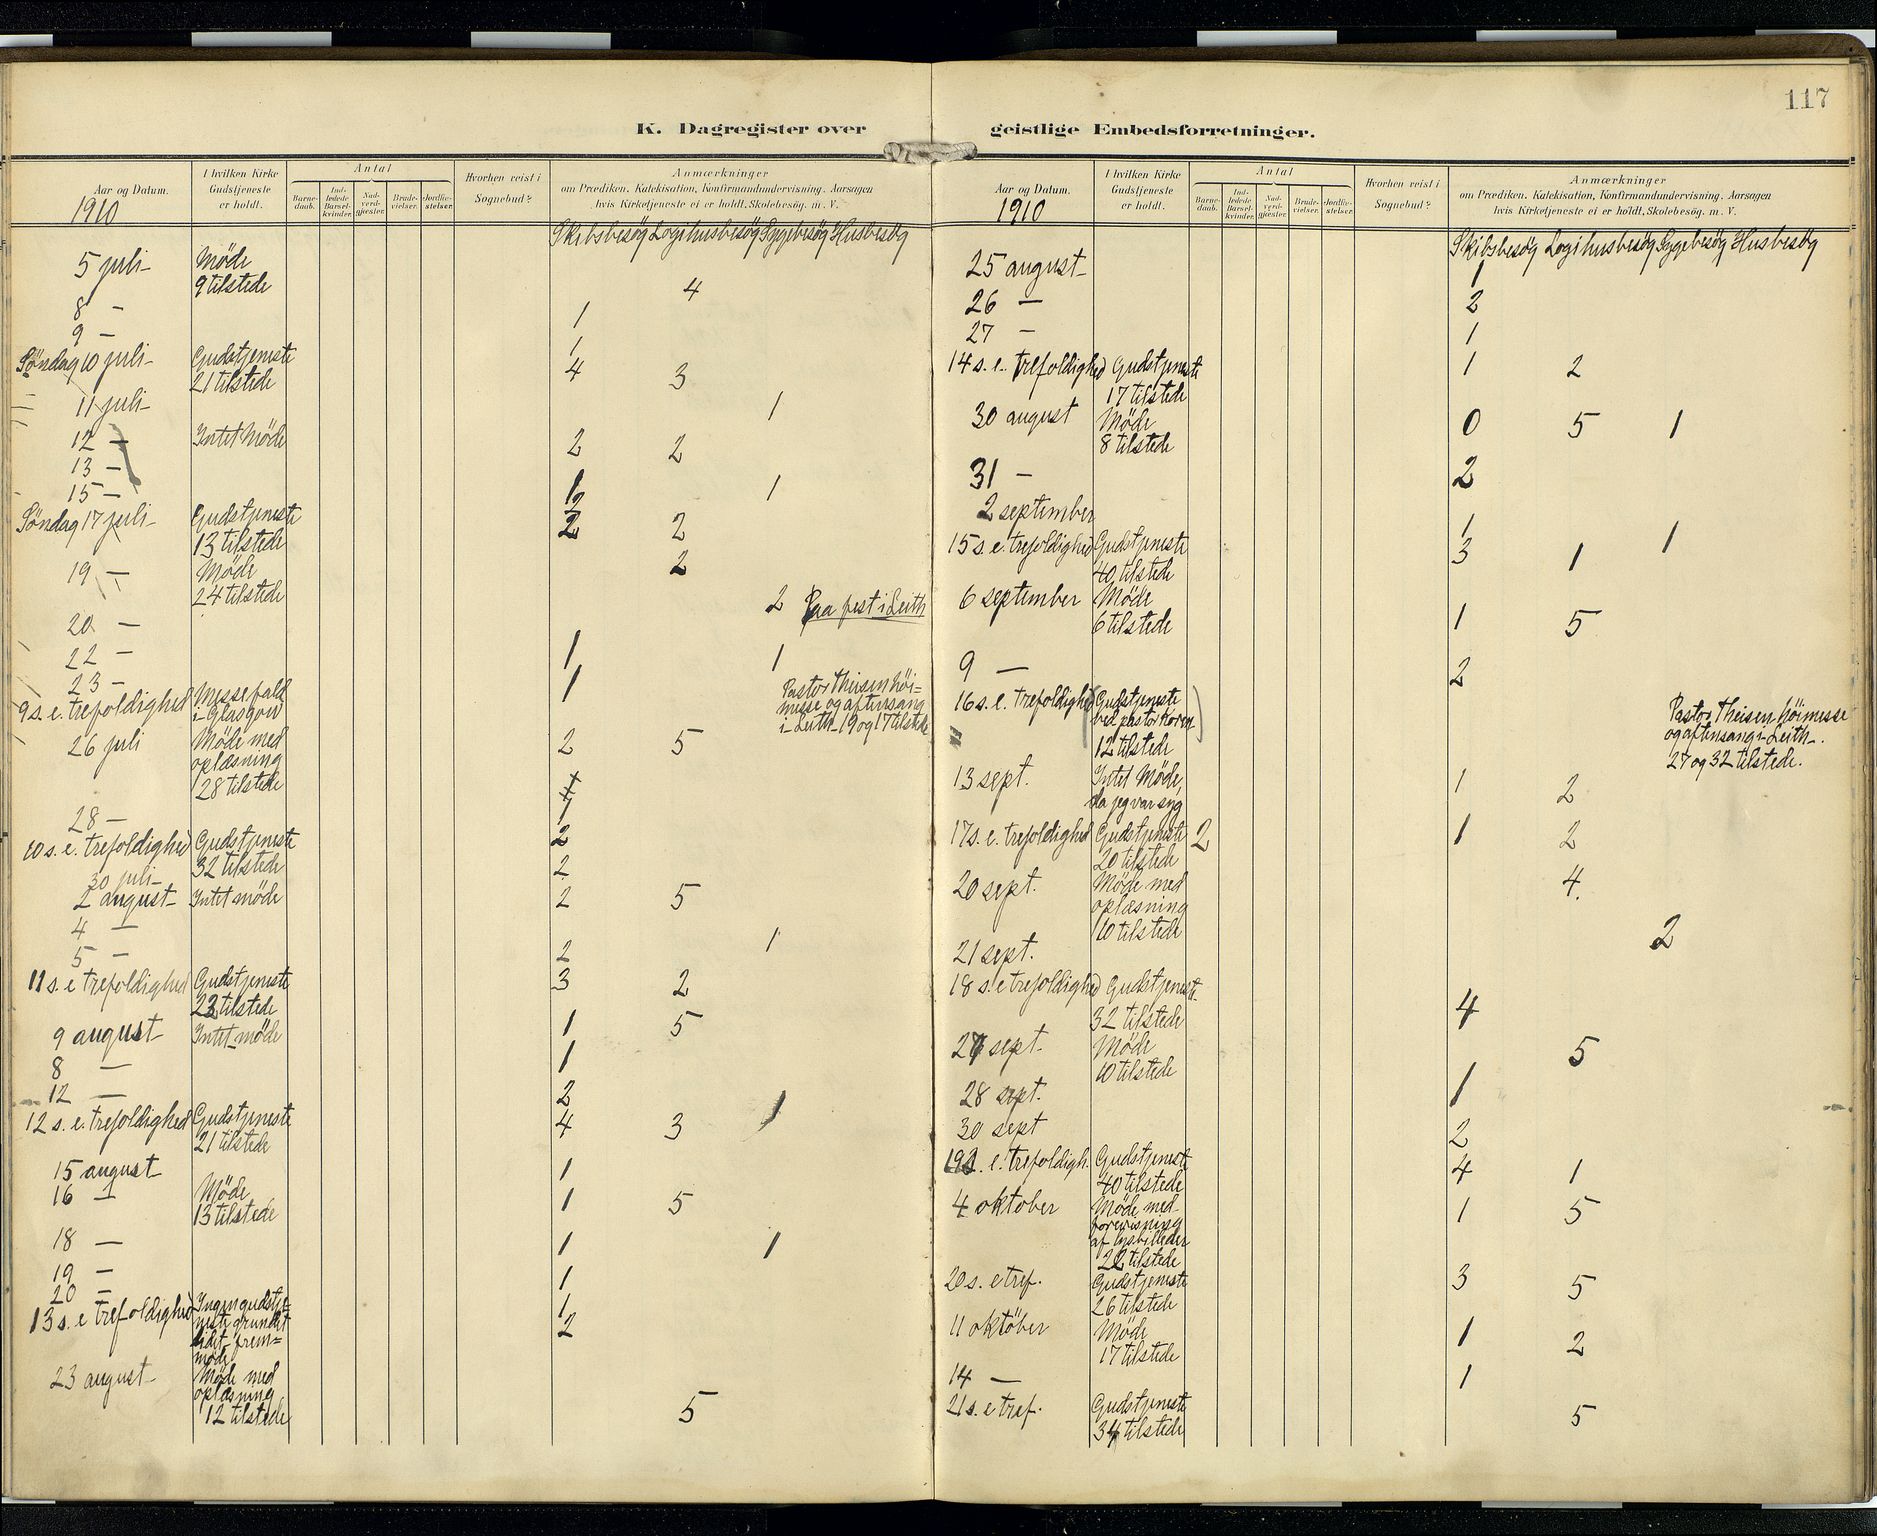 117
K. Dagregister over geistlige Embedsforretninger.
Aar og Datum.
1910
I hvilken Kirke Gudstjeneste er holdt.
Antal
Barnedaab.
Indledede Barselkvinder.
Nadverdgjester.
Brudevielser.
Jordfæstelser.
Hvorhen reist i Sognebud?
Anmærkninger
om Prædiken, Katekisation, Konfirmandundervisning, Aarsagen
hvis Kirketjeneste ei er holdt, Skolebesög. m. V.
Skibsbesög Logihusbesög Sygebesög Husbesög
5 juli Möde
9 tilstede 4
8 — 1
9 — 1
Söndag 10 juli Gudstjeneste 4 3
21 tilstede
11 juli 1
12 — Intet Möde 2 2
13 —
15 — 1 1
2
Söndag 17 juli Gudstjeneste 2 2
13 tilstede
19 — Möde 2
24 tilstede
20 — 2 Paa fest i Leith
22 — 1 1
23 — 1
9 s. e. trefoldighed Messefald
i Glasgow
Pastor Theisen höi=
messe og aftensang
i Leith 19 og 17 tilstede
26 juli Möde med 2 5
oplæsning
28 tilstede
28 — 1
10 s. e. trefoldighed Gudstjeneste 2
32 tilstede
30 juli 2
2 august Intet möde 2 5
4 — 1
5 — 2
11 s. e trefoldighed Gudstjeneste 3 2
23 tilstede
9 august Intet möde 1 5
8 — 1
12 — 2
12 s. e. trefoldighed Gudstjeneste 4 3 1
21 tilstede
15 august 1
16 — Möde 1 5
13 tilstede
18 — 1 1
19 — 1
20 — 1
13 s. e trefoldighed Ingen gudstje= 2
neste grundet
lidet frem=
möde
23 august Möde med
oplæsning
12 tilstede 5
Aar og Datum.
1910
I hvilken Kirke Gudstjeneste er holdt.
Antal
Barnedaab.
Indledede Barselkvinder.
Nadverdgjester.
Brudevielser.
Jordfæstelser.
Hvorhen reist i Sognebud?
Anmærkninger
om Prædiken, Katekisation, Konfirmandundervisning, Aarsagen
hvis Kirketjeneste ei er holdt, Skolebesög. m. V.
Skibsbesög Logihusbesög Sygebesög Husbesög
25 august 1
26 — 2
27 — 1
14 s. e. trefoldighed Gudstjeneste 1 2
17 tilstede
30 august Möde 0 5 1
8 tilstede
31 — 2
2 september 1 1
15 s. e. trefoldighed Gudstjeneste 3 1
40 tilstede
6 september Möde 1 5
6 tilstede
9 — 2
16 s. e. trefoldighed (Gudstjeneste
ved pastor Koren)
12 tilstede
Pastor Theisen höimesse
og aftensang i Leith.
27 og 32 tilstede.
13 sept. Intet Möde, 1 2
da jeg var syg
17 s. e. trefoldighed Gudstjeneste 2 1 2
20 tilstede
20 sept. Möde med 4.
oplæsning
10 tilstede
21 sept. 2
18 s. e trefoldighed Gudstjeneste 4
32 tilstede
27 sept. Möde 5
10 tilstede
28 sept. 1
30 sept 2
19 s. e. trefoldigh. Gudstjeneste 4 1
40 tilstede
4 oktober Möde med 1 5
forevisning
af lysbilleder
22 tilstede
20 s. e tref. Gudstjeneste 3 5
26 tilstede
11 oktöber Möde 1 2
17 tilstede
14 — 1
21 s. e tref. Gudstjeneste 5
34 tilstede